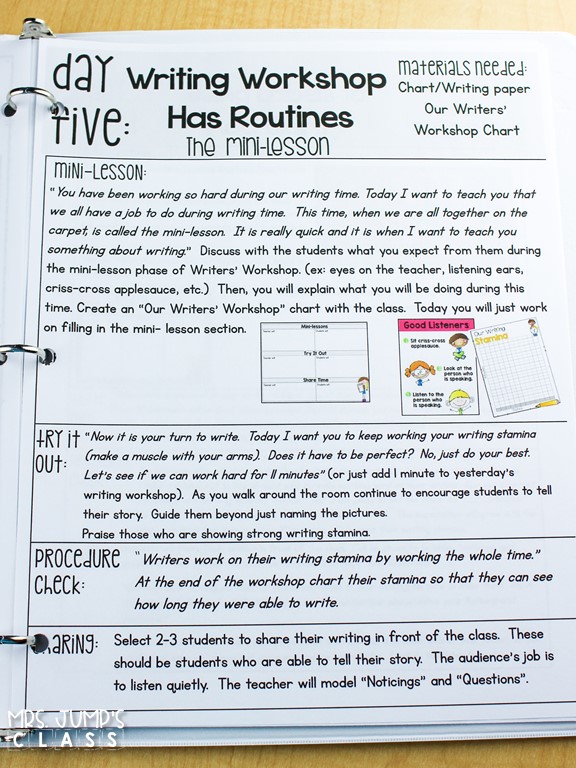 day five:
Writing Workshop
Has Routines
The Mini-Lesson
Materials Needed:
Chart/Writing paper
Our Writers'
Workshop Chart
Mini-Lesson:
"You have been working so hard during our writing time. Today I want to teach you that
we all have a job to do during writing time. This time, when we are all together on the
carpet, is called the mini-lesson. It is really quick and it is when I want to teach you
something about writing." Discuss with the students what you expect from them during
the mini-lesson phase of Writers' Workshop. (ex: eyes on the teacher, listening ears,
criss-cross applesauce, etc.) Then, you will explain what you will be doing during this
time. Create an "Our Writers' Workshop" chart with the class. Today you will just work
on filling in the mini- lesson section.
Mini-lessons
Try It Out
Share Time
Good Listeners
Sit criss-cross
applesauce.
Look at the
person who
is speaking.
Listen to the
person who
is speaking.
Our Writing
Stamina
Try it
Out:
"Now it is your turn to write. Today I want you to keep working your writing stamina
(make a muscle with your arms). Does it have to be perfect? No, just do your best.
Let's see if we can work hard for 11 minutes" (or just add 1 minute to yesterday's
writing workshop). As you walk around the room continue to encourage students to tell
their story. Guide them beyond just naming the pictures.
Praise those who are showing strong writing stamina.
Procedure
Check:
"Writers work on their writing stamina by working the whole time."
At the end of the workshop chart their stamina so that they can see
how long they were able to write.
haring:
Select 2-3 students to share their writing in front of the class. These
should be students who are able to tell their story. The audience's job is
to listen quietly. The teacher will model "Noticings" and "Questions".
Mrs. Jump's
Class